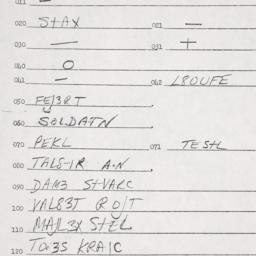 011 —
020 STAX 021 —
030 — 031 +
040 O
041 — 042 L80UFE
050 FEJ3RT
060 SOLDATN
070 PEKL 071 TESTL
080 TALS-IR A·N
090 DAM3 STVARC
100 VALS3T ROJT
110 MAJL3X STEL
120 KRAIC